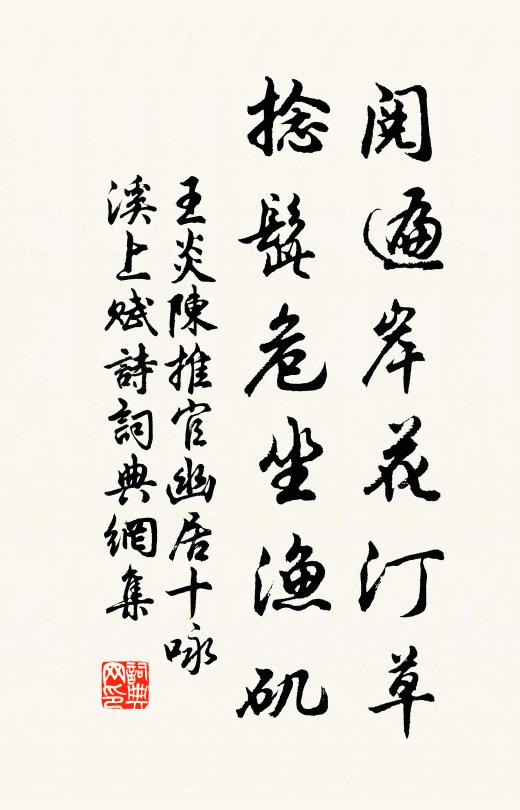 閱遍岸花汀草
捻髭危坐漁矶
王炎陳推官幽居十咏
溪上賦詩詞典網集
詞典
网印